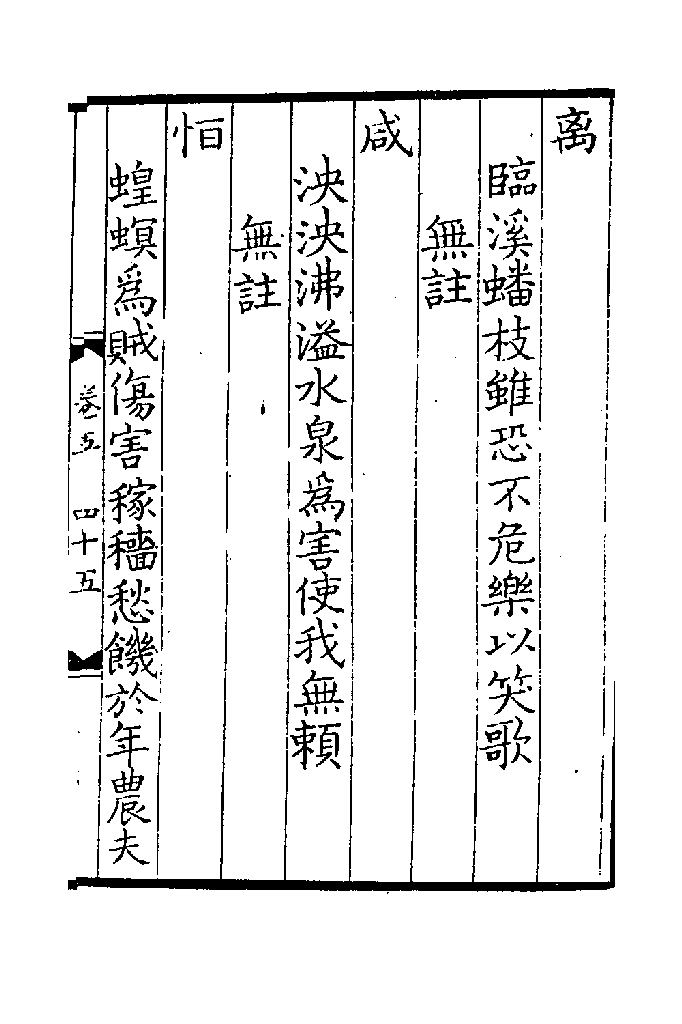 离
臨溪蟠枝雖恐不危樂以笑歌
無註
咸
泱泱沸溢水泉為害使我無賴
無註
恒
蝗螟為賊傷害稼穡愁饑於年農夫
卷五 四十五